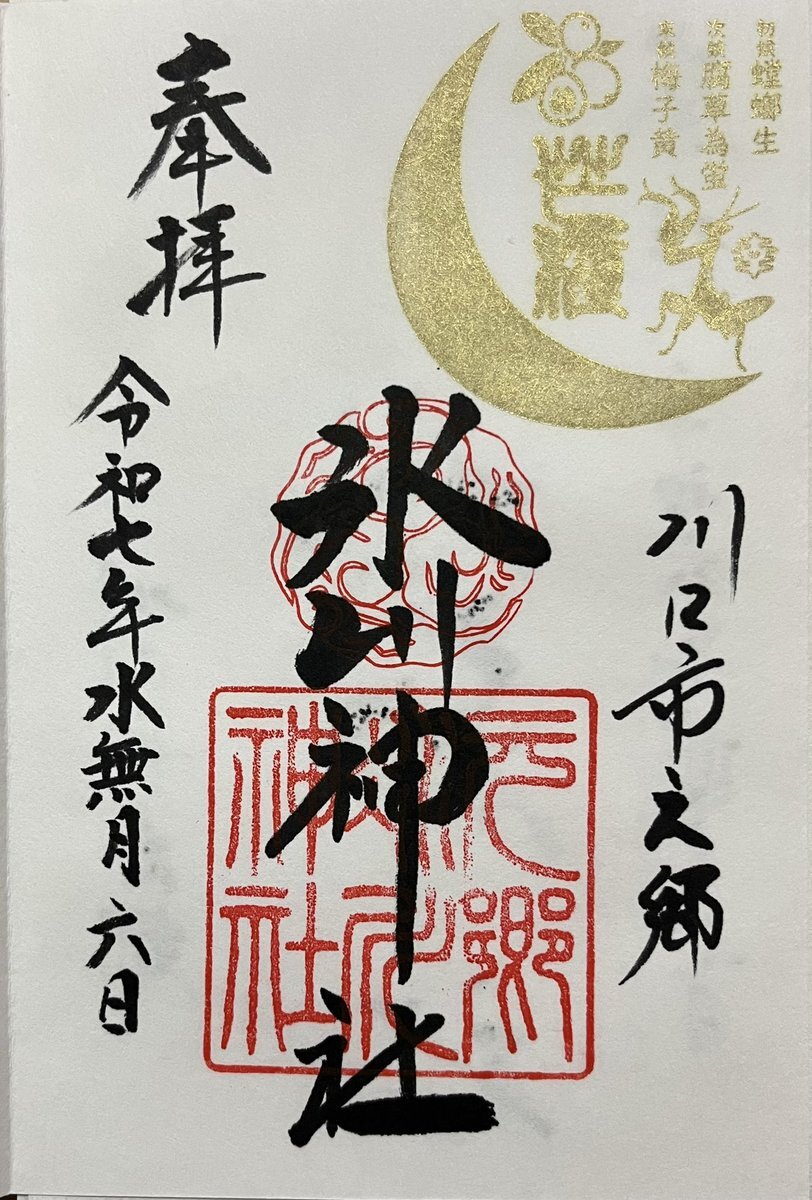 初候 螳螂生
次候 腐草為蛍
末候 梅子黄
芒種
川口市元郷
奉拝
氷川神社
元郷
氷川
神社
令和七年水無月六日